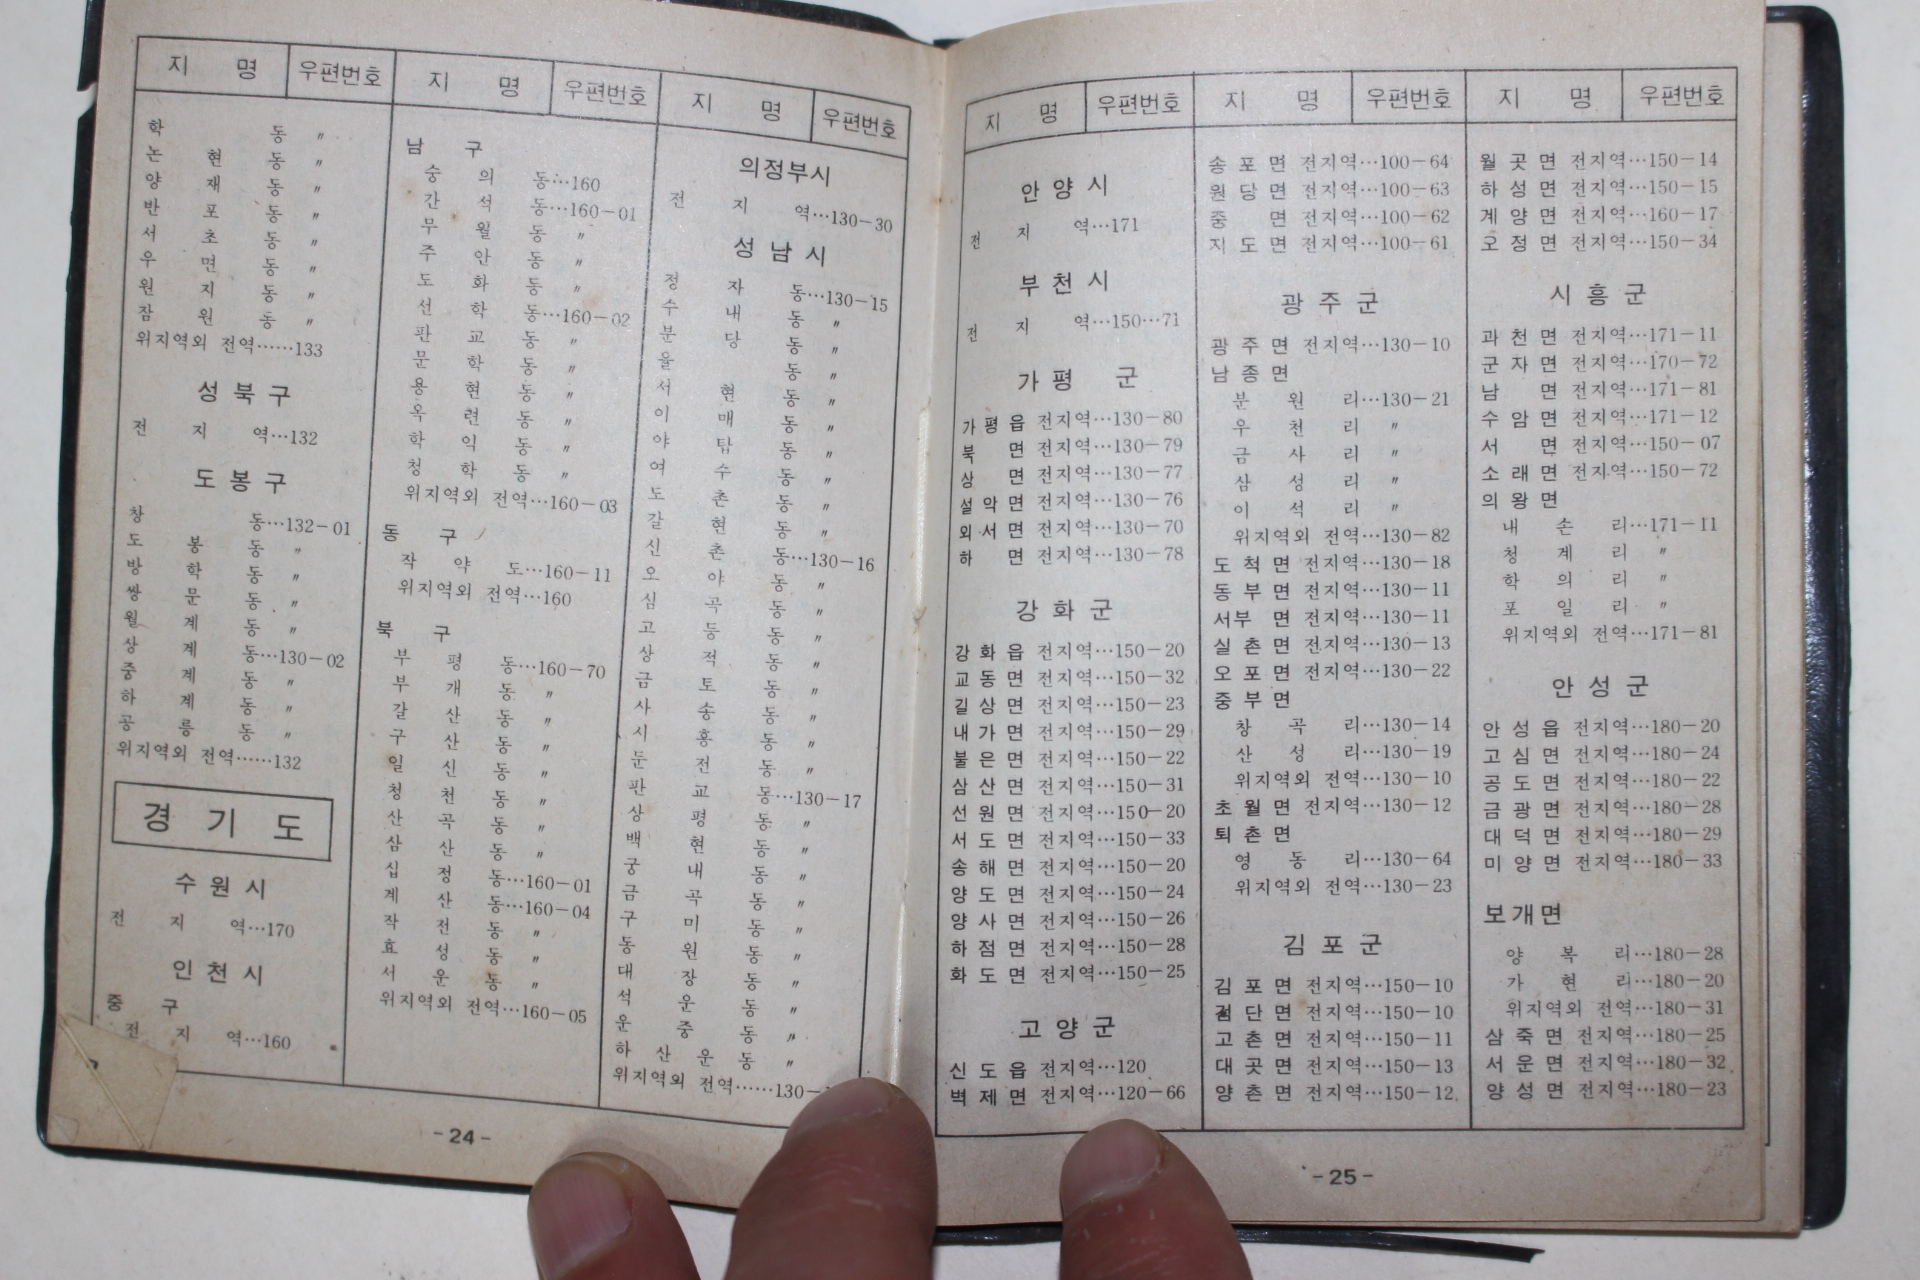 지 명 우편번호
학 동 〃
논 현 동 〃
양 재 동 〃
반 포 동 〃
서 초 동 〃
우 면 동 〃
원 지 동 〃
잠 원 동 〃
위지역외 전역……133
성 북 구
전 지 역…132
도 봉 구
창 동…132-01
도 봉 동 〃
방 학 동 〃
쌍 문 동 〃
월 계 동 〃
상 계 동…130-02
중 계 동 〃
하 계 동 〃
공 릉 동 〃
위지역외 전역……132
경 기 도
수 원 시
전 지 역…170
인 천 시
중 구
전 지 역…160
지 명 우편번호
남 구
숭 의 동…160
간 석 동…160-01
무 월 동 〃
주 안 동 〃
도 화 동 〃
선 학 동…160-02
판 교 동 〃
문 학 동 〃
용 현 동 〃
옥 련 동 〃
학 익 동 〃
청 학 동 〃
위지역외 전역…160-03
동 구
작 약 도…160-11
위지역외 전역…160
북 구
부 평 동…160-70
부 개 동 〃
갈 산 동 〃
구 산 동 〃
일 신 동 〃
청 천 동 〃
산 곡 동 〃
삼 산 동 〃
십 정 동…160-01
계 산 동…160-04
작 전 동 〃
효 성 동 〃
서 운 동 〃
위지역외 전역…160-05
지 명 우편번호
의정부시
전 지 역…130-30
성 남 시
정 자 동…130-15
수 내 동 〃
분 당 동 〃
율 동 〃
서 현 동 〃
이 매 동 〃
야 탑 동 〃
여 수 동 〃
도 촌 동 〃
갈 현 동 〃
신 촌 동…130-16
오 야 동 〃
심 곡 동 〃
고 등 동 〃
상 적 동 〃
금 토 동 〃
사 송 동 〃
시 흥 동 〃
둔 전 동 〃
판 교 동…130-17
상 평 동 〃
백 현 동 〃
궁 내 동 〃
금 곡 동 〃
구 미 동 〃
동 원 동 〃
대 장 동 〃
석 운 동 〃
운 중 동 〃
하 산 운 동 〃
위지역외 전역……130-
-24-
지 명 우편번호
안 양 시
전 지 역…171
부 천 시
전 지 역…150…71
가 평 군
가 평 읍 전지역…130-80
북 면 전지역…130-79
상 면 전지역…130-77
설 악 면 전지역…130-76
외 서 면 전지역…130-70
하 면 전지역…130-78
강 화 군
강 화 읍 전지역…150-20
교 동 면 전지역…150-32
길 상 면 전지역…150-23
내 가 면 전지역…150-29
불 은 면 전지역…150-22
삼 산 면 전지역…150-31
선 원 면 전지역…150-20
서 도 면 전지역…150-33
송 해 면 전지역…150-20
양 도 면 전지역…150-24
양 사 면 전지역…150-26
하 점 면 전지역…150-28
화 도 면 전지역…150-25
고 양 군
신 도 읍 전지역…120
벽 제 면 전지역…120-66
지 명 우편번호
송 포 면 전지역…100-64
원 당 면 전지역…100-63
중 면 전지역…100-62
지 도 면 전지역…100-61
광 주 군
광 주 면 전지역…130-10
남 종 면
분 원 리…130-21
우 천 리 〃
금 사 리 〃
삼 성 리 〃
이 석 리 〃
위지역외 전역…130-82
도 척 면 전지역…130-18
동 부 면 전지역…130-11
서부 면 전지역…130-11
실 촌 면 전지역…130-13
오 포 면 전지역…130-22
중 부 면
창 곡 리…130-14
산 성 리…130-19
위지역외 전역…130-10
초 월 면 전지역…130-12
퇴 촌 면
영 동 리…130-64
위지역외 전역…130-23
김 포 군
김 포 면 전지역…150-10
검 단 면 전지역…150-10
고 촌 면 전지역…150-11
대 곳 면 전지역…150-13
양 촌 면 전지역…150-12
지 명 우편번호
월 곳 면 전지역…150-14
하 성 면 전지역…150-15
계 양 면 전지역…160-17
오 정 면 전지역…150-34
시 흥 군
과 천 면 전지역…171-11
군 자 면 전지역…170-72
남 면 전지역…171-81
수 암 면 전지역…171-12
서 면 전지역…150-07
소 래 면 전지역…150-72
의 왕 면
내 손 리…171-11
청 계 리 〃
학 의 리 〃
포 일 리 〃
위지역외 전역…171-81
안 성 군
안 성 읍 전지역…180-20
고 심 면 전지역…180-24
공 도 면 전지역…180-22
금 광 면 전지역…180-28
대 덕 면 전지역…180-29
미 양 면 전지역…180-33
보개면
양 복 리…180-28
가 현 리…180-20
위지역외 전역…180-31
삼 죽 면 전지역…180-25
서 운 면 전지역…180-32
양 성 면 전지역…180-23
-25-